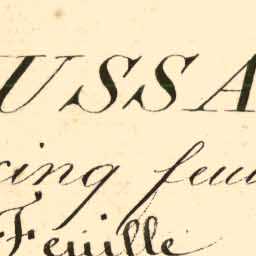 USSA
cing feu
Feuille